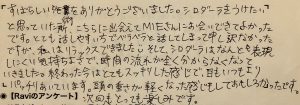 すばらしい施術をありがとうございました。シロダーラをうけたい。
と思っていた所、こちらに出会えてMIEさんにお会いできてよかった
です。とても話しやすくてペラペラと話してしまって申し訳なかった
ですが、私はリラックスできました。そしてシロダーラはなんとも表現
しにくい気持ちよさで、時間の流れが全く分からなくなって
いきました。終わったらほとてもスッキリした感じで、目もいつもより
パッチリあいています。頭の重さが軽くなった感じもしておもしろかったです。
●【Raviのアンケート】 次回もとっても楽しみです。